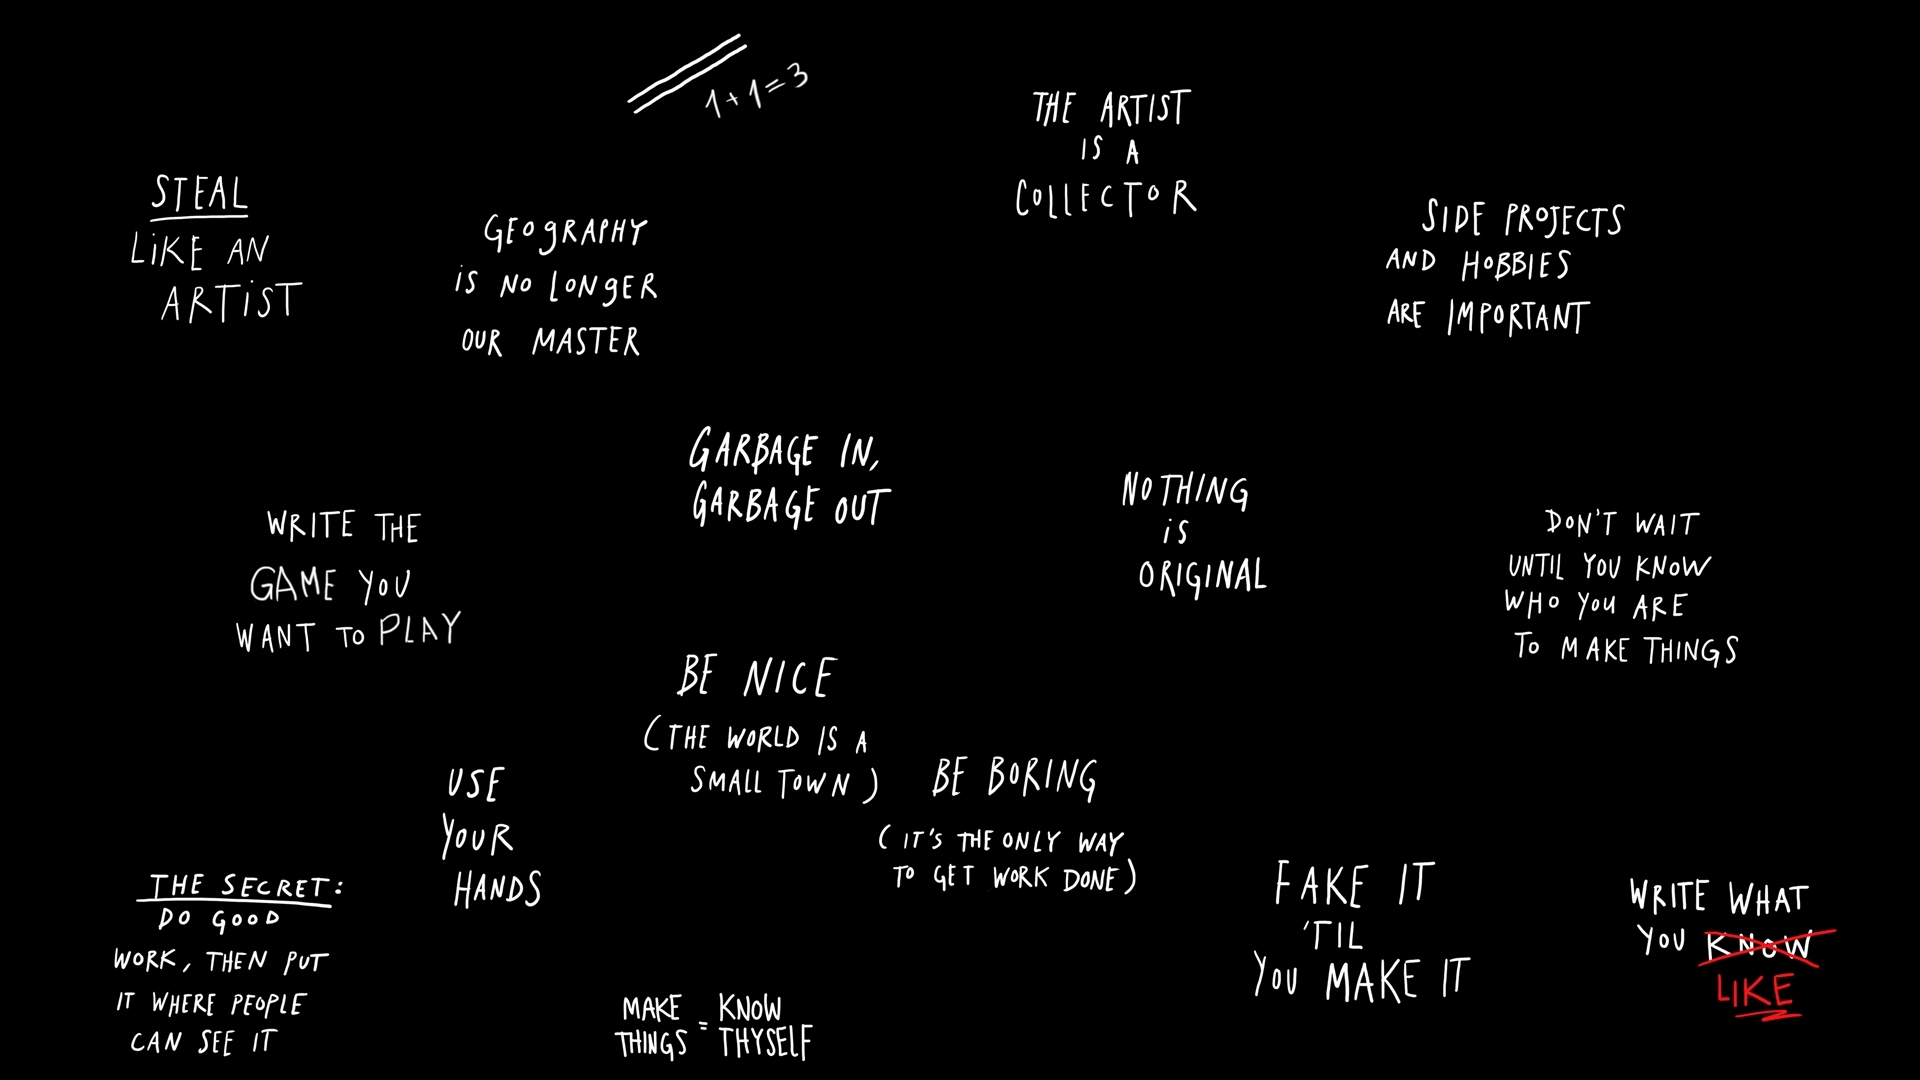 1+1=3
THE ARTIST
IS A
COLLECTOR
STEAL
LIKE AN
ARTIST
GEOGRAPHY
IS NO LONGER
OUR MASTER
SIDE PROJECTS
AND HOBBIES
ARE IMPORTANT
GARBAGE IN,
GARBAGE OUT
NOTHING
IS
ORIGINAL
WRITE THE
GAME YOU
WANT TO PLAY
DON'T WAIT
UNTIL YOU KNOW
WHO YOU ARE
TO MAKE THINGS
BE NICE
(THE WORLD IS A
SMALL TOWN)
USE
YOUR
HANDS
BE BORING
(IT'S THE ONLY WAY
TO GET WORK DONE)
THE SECRET:
DO GOOD
WORK, THEN PUT
IT WHERE PEOPLE
CAN SEE IT
FAKE IT
'TIL
YOU MAKE IT
WRITE WHAT
YOU KNOW
LIKE
MAKE = KNOW
THINGS THYSELF